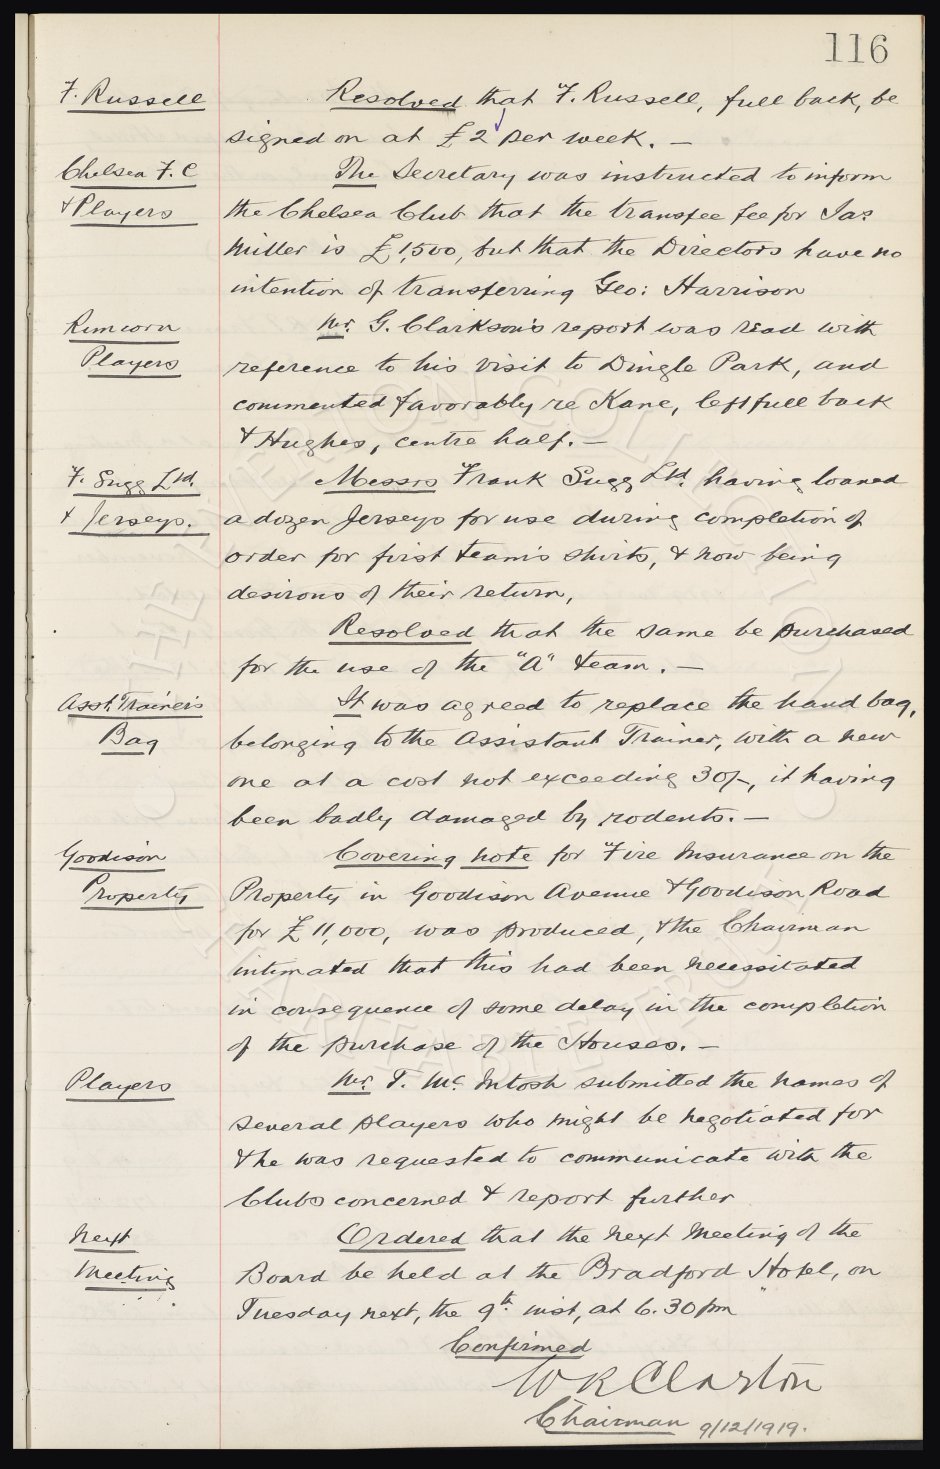 116
F. Russell
Resolved that F. Russell, full back, be
signed on at £2 per week. —
Chelsea F. C
& Players
The Secretary was instructed to inform
the Chelsea Club that the transfee fee for Jas
Miller is £1,500, but that the Directors have no
intention of transferring Geo: Harrison
Runcorn
Players
Mr. G. Clarkson's report was read with
reference to his visit to Dingle Park, and
commented favorably re Kane, left full back
& Hughes, centre half. —
F. Sugg Ltd.
& Jerseys.
Messrs Frank Sugg Ltd. having loaned
a dozen Jerseys for use during completion of
order for first team's shirts, & now being
desirous of their return,
Resolved that the same be purchased
for the use of the "A" team. —
Asst. Trainer's
Bag
It was agreed to replace the hand bag,
belonging to the Assistant Trainer, with a new
one at a cost not exceeding 30/-, it having
been badly damaged by rodents. —
Goodison
Property
Covering note for Fire Insurance on the
Property in Goodison Avenue & Goodison Road
for £11,000, was produced, & the Chairman
intimated that this had been necessitated
in consequence of some delay in the completion
of the purchase of the Houses. —
Players
Mr. T. McIntosh submitted the names of
several players who might be negotiated for
& he was requested to communicate with the
Clubs concerned & report further
Next
Meeting
Ordered that the next Meeting of the
Board be held at the Bradford Hotel, on
Tuesday next, the 9th inst, at 6.30 pm
Confirmed
W R Clayton
Chairman 9/12/1919.